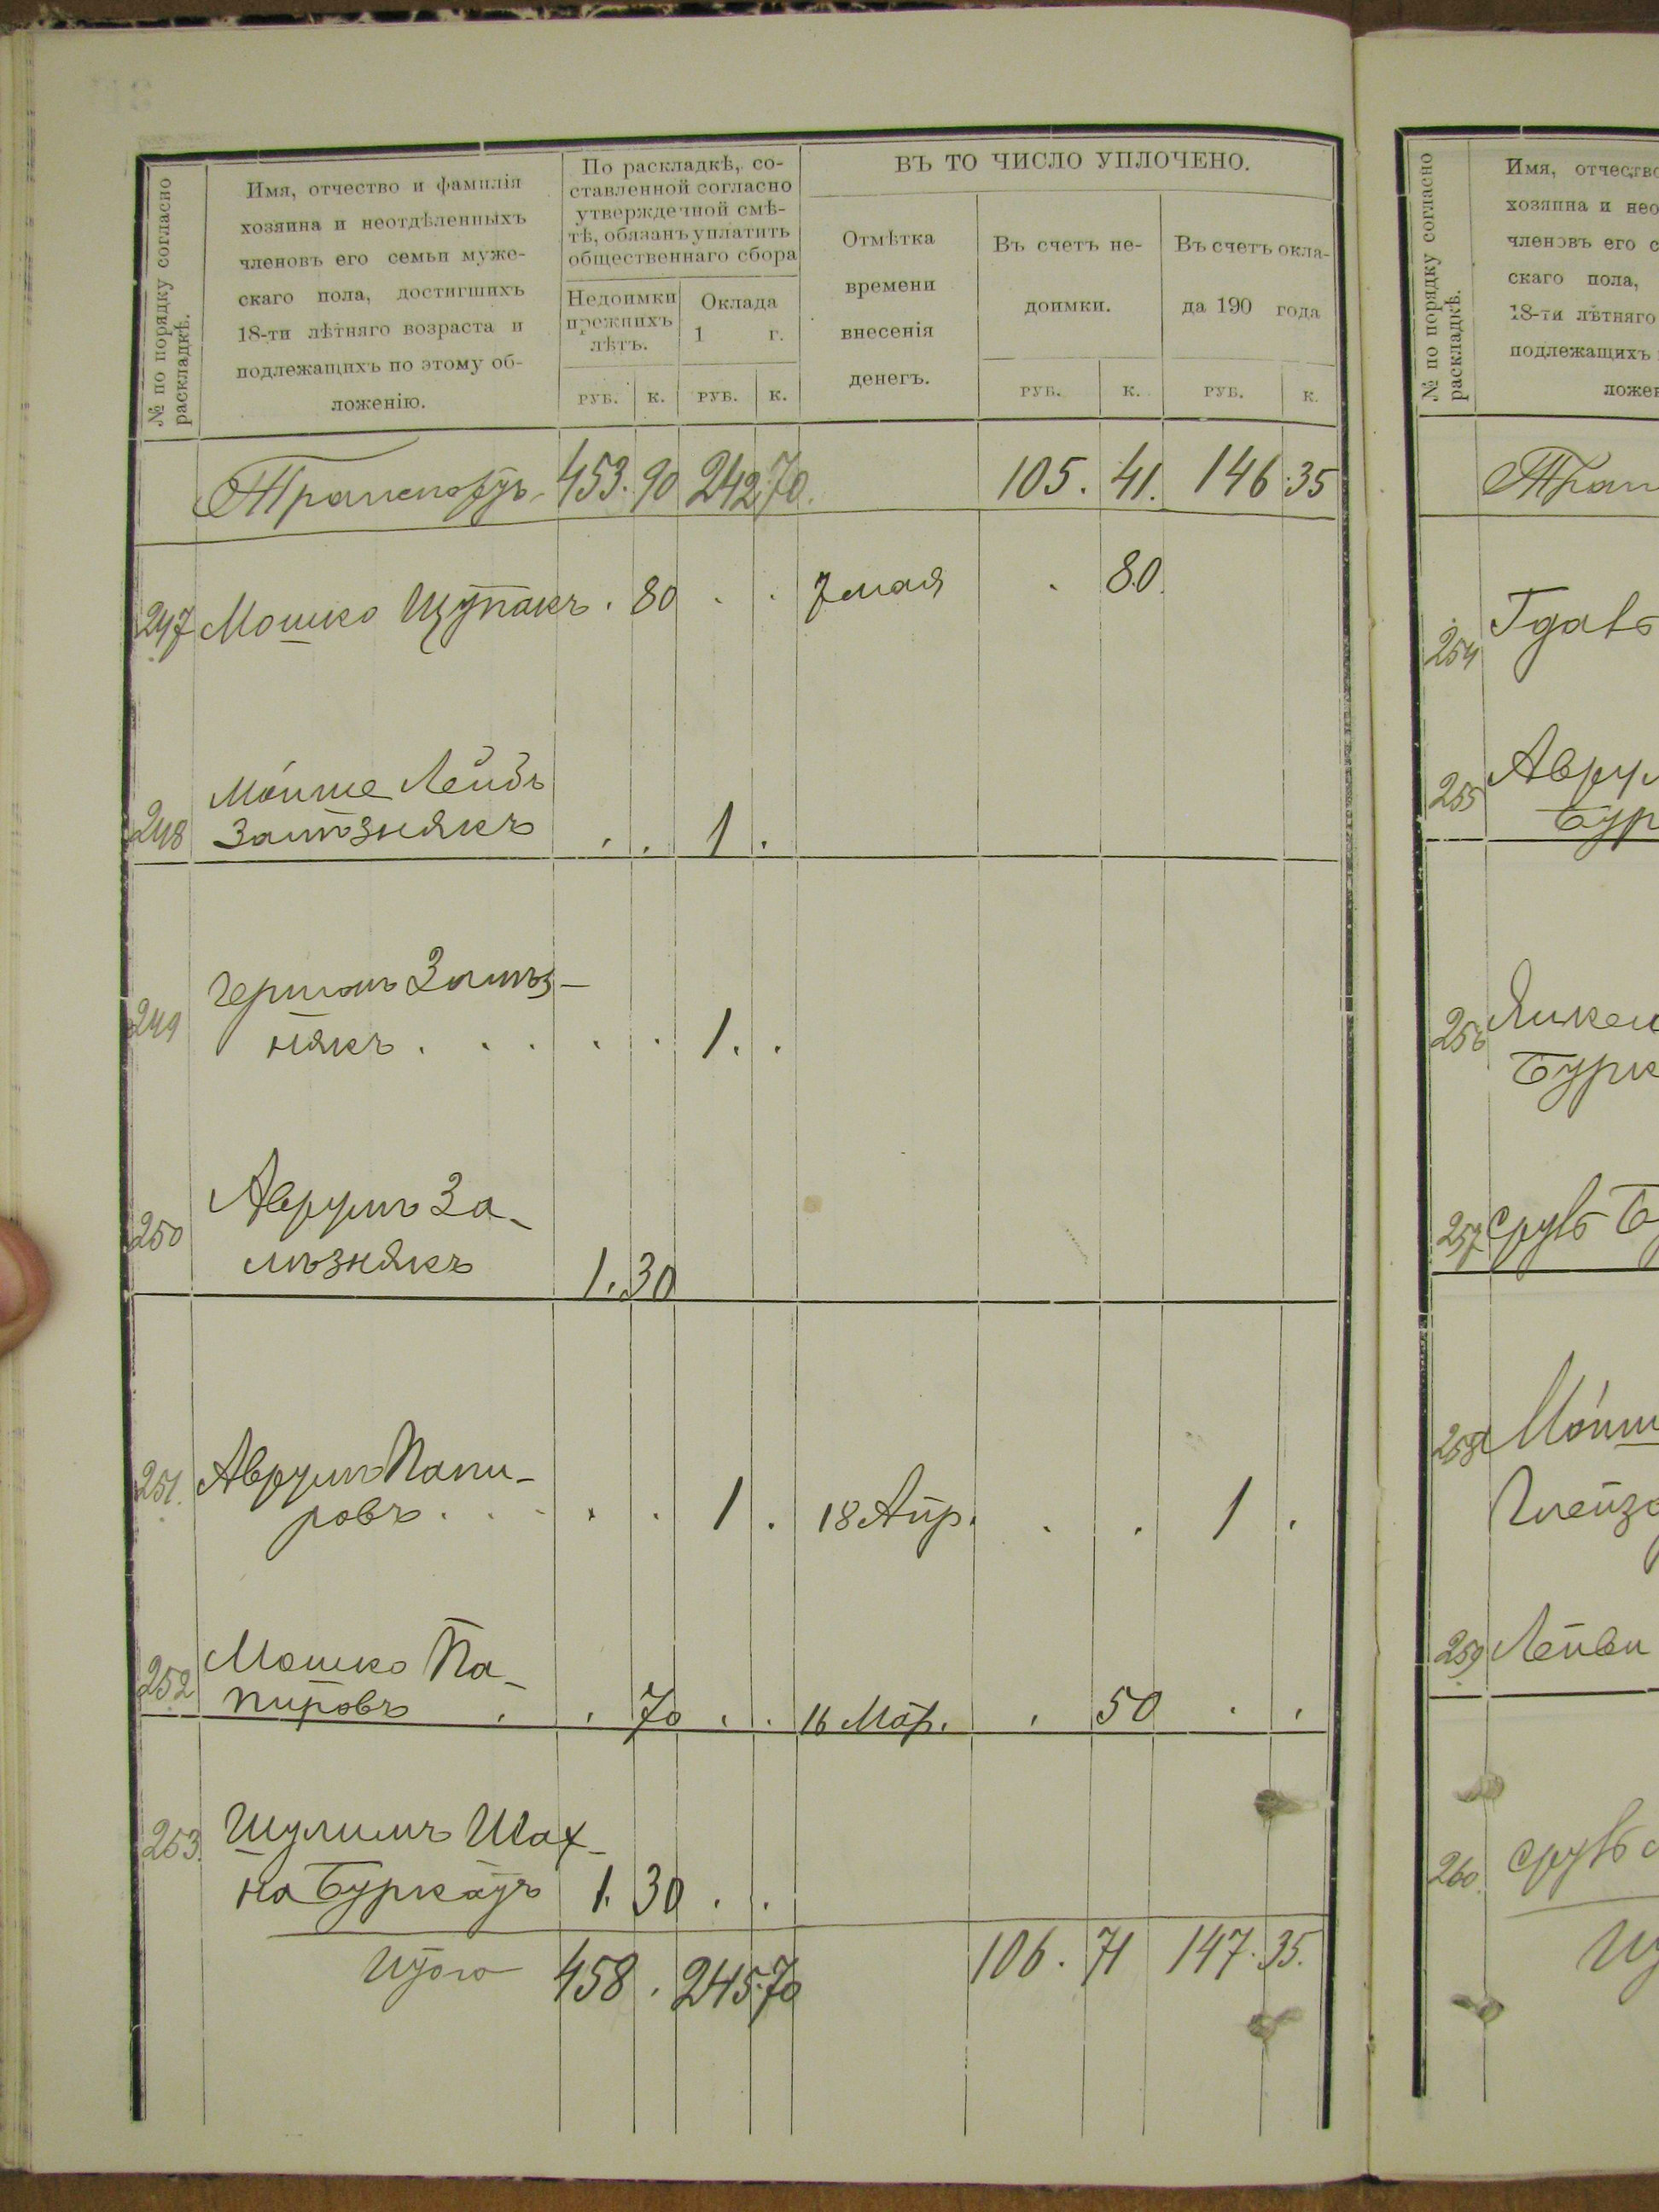 № по порядку согласно
раскладкѣ.
Имя, отчество и фамилія
хозяина и неотдѣленныхъ
членовъ его семьи муже-
скаго пола, достигшихъ
18-ти лѣтняго возраста и
подлежащихъ по этому об-
ложенію.
По раскладкѣ, со-
ставленной согласно
утвержденной смѣ-
тѣ, обязанъ уплатить
общественнаго сбора
Недоимки
прежнихъ
лѣтъ.
Оклада
1 г.
РУБ. К. РУБ. К.
ВЪ ТО ЧИСЛО УПЛОЧЕНО.
Отмѣтка
времени
внесенія
денегъ.
Въ счетъ не-
доимки.
Въ счетъ окла-
да 190 года
РУБ. К. РУБ. К.
Транспортъ 453. 90 242 70. 105. 41. 146 35
247 Мошко Щупакъ . 80 . . 7 мая . 80.
Мойше Лейбъ
248 . . 1 .
249 Герш
някъ . . . . . 1. .
250 Аврумъ За-
1. 30
251. Аврумъ Папи-
ровъ . . . . . 1 . 18 Апр. . . 1 .
252 Мошко Па-
пировъ . . 70 . . 16 Мар. . 50 . .
253. Шулимъ Шах-
на Буркатъ 1. 30 . .
Итого 458 . 245.70 106. 71 147. 35.
№ по порядку согласно
раскладкѣ.
Имя, отчество
хозяина и нео
членовъ его с
скаго пола,
18-ти лѣтняго
подлежащихъ
ложен
Тран
254
255 Аврум
Бур
256 Янкел
Бурк
257 Срулъ Бу
258 Мойш
259 Лейви
260. Срулъ
Ит